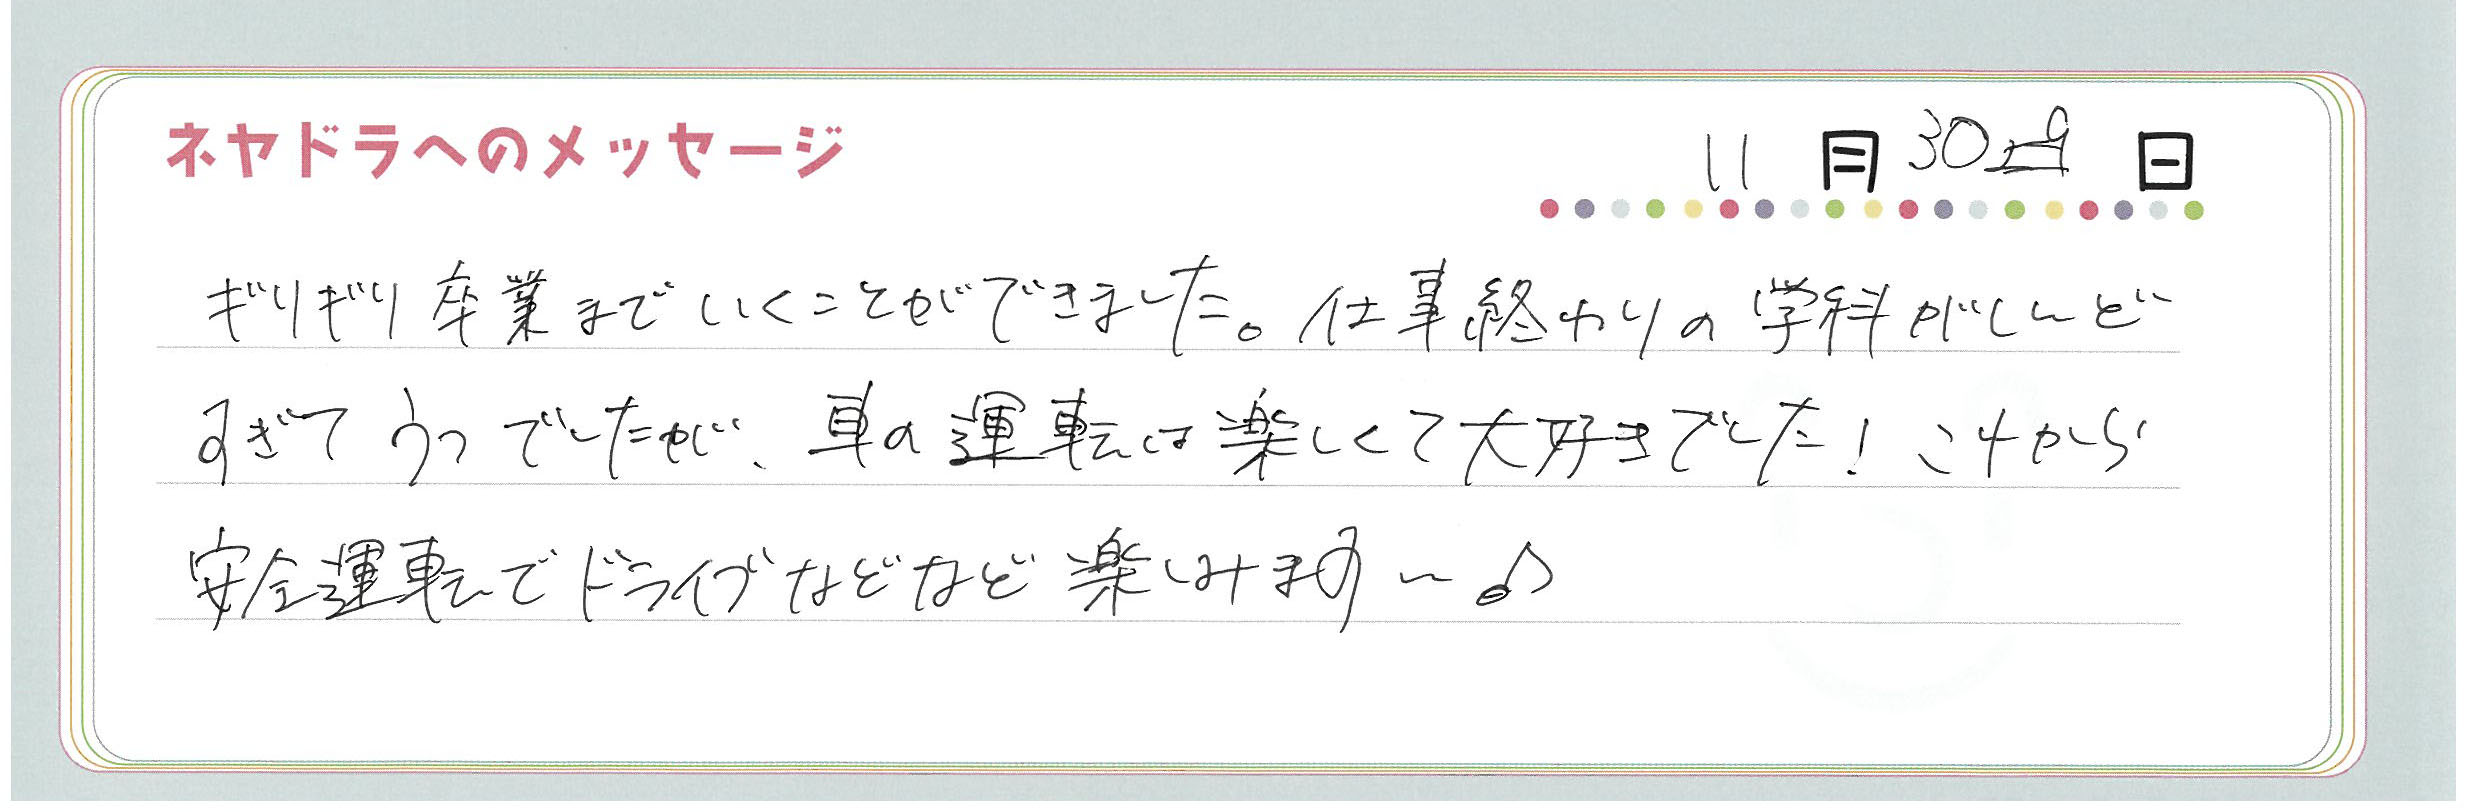 ネヤドラへのメッセージ
11月30日
ギリギリ卒業までいくことができました。仕事終わりの学科がしんど
すぎてうつでしたが、車の運転は楽しくて大好きでした！これから
安全運転でドライブなどなど楽しみます〜♪